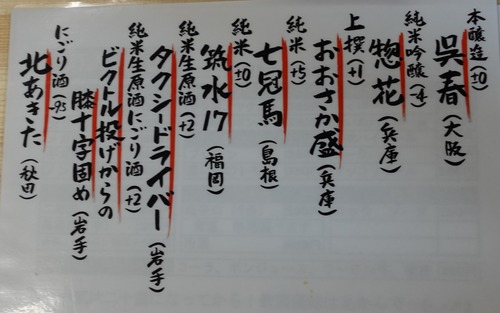 本醸造(±0)
呉春(大阪)
純米吟醸(-4)
惣花(兵庫)
上撰(+1)
おおさか盛(兵庫)
純米(+5)
七冠馬(島根)
純米(±0)
筑水17(福岡)
純米生原酒(+2)
タクシードライバー(岩手)
純米生原酒にごり酒(+2)
ビクトル投げからの
膝十字固め(岩手)
にごり酒(-25)
北あきた(秋田)